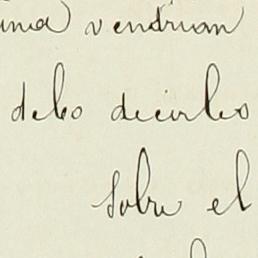 vendrian
debo decirles
sobre el